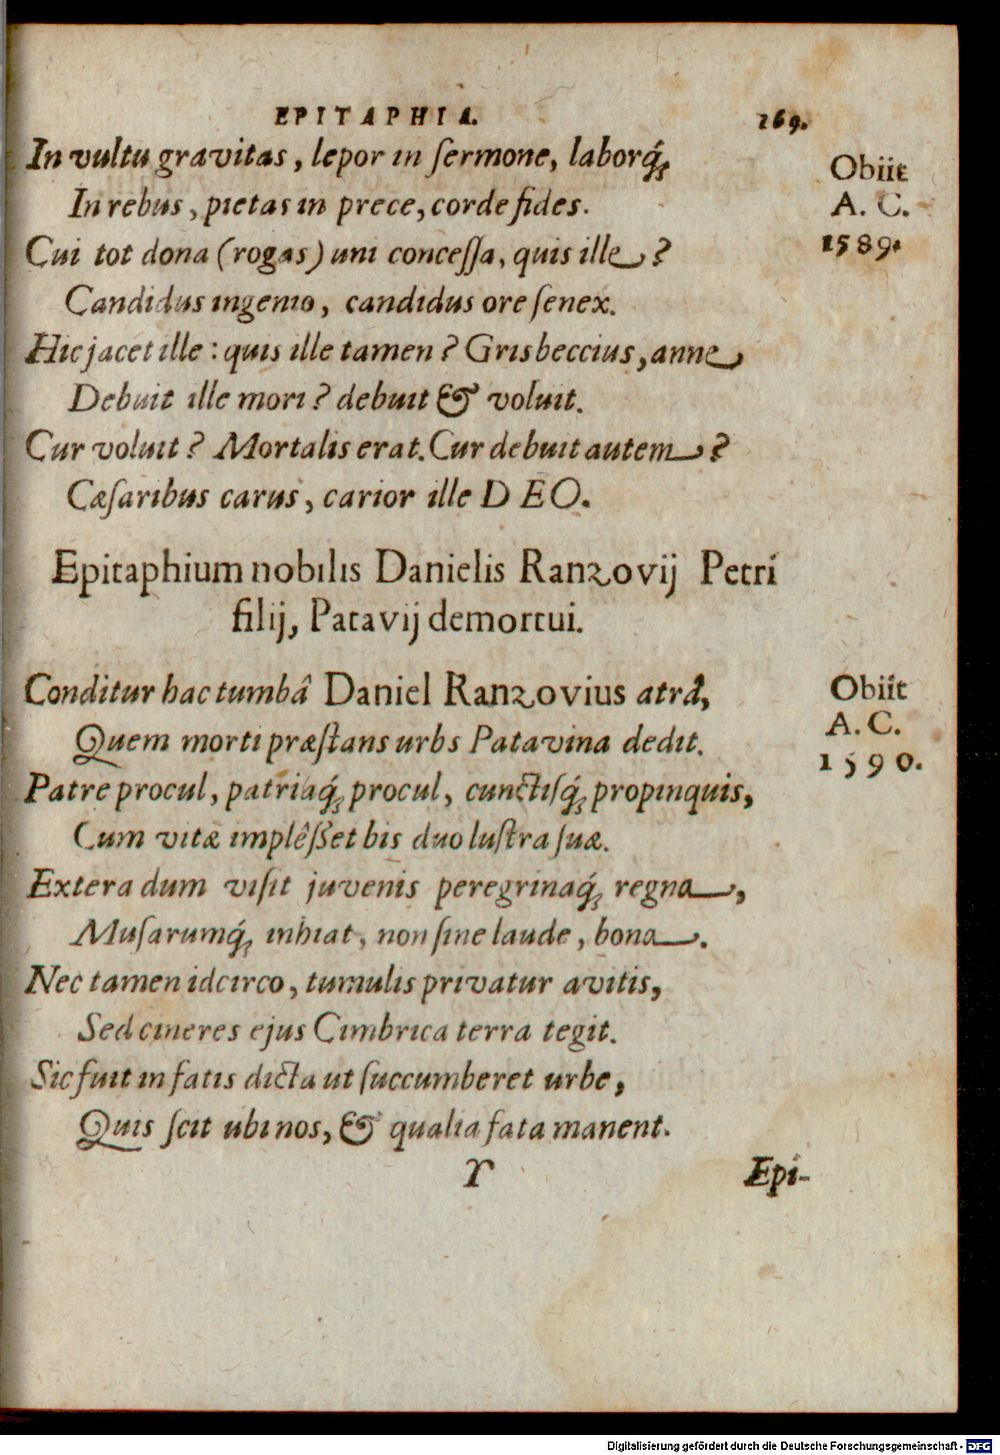 EPITAPHIA. 169.
In vultu gravitas, lepor in ſermone, laborq́;
Obiit
In rebus, pietas in prece, corde fides.
A. C.
Cui tot dona (rogas) uni conceſſa, quis ille?
1589.
Candidus ingenio, candidus ore ſenex.
Hic jacet ille: quis ille tamen? Grisbeccius, anne
Debuit ille mori? debuit & voluit.
Cur voluit? Mortalis erat. Cur debuit autem?
Cæſaribus carus, carior ille DEO.
Epitaphium nobilis Danielis Ranzovij Petri
filij, Patavij demortui.
Conditur hac tumbâ Daniel Ranzovius atrâ,
Obiit
Quem morti præſtans urbs Patavina dedit.
A. C.
Patre procul, patriaq́; procul, cunctiſq́; propinquis,
1590.
Cum vitæ implêſſet bis duo luſtra ſuæ.
Extera dum viſit juvenis peregrinaq́; regna,
Muſarumq́; inhiat, non ſine laude, bona.
Nec tamen idcirco, tumulis privatur avitis,
Sed cineres ejus Cimbrica terra tegit.
Sic fuit in fatis dicta ut ſuccumberet urbe,
Quis ſcit ubi nos, & qualia fata manent.
Y Epi-
Digitalisierung gefördert durch die Deutsche Forschungsgemeinschaft - DFG